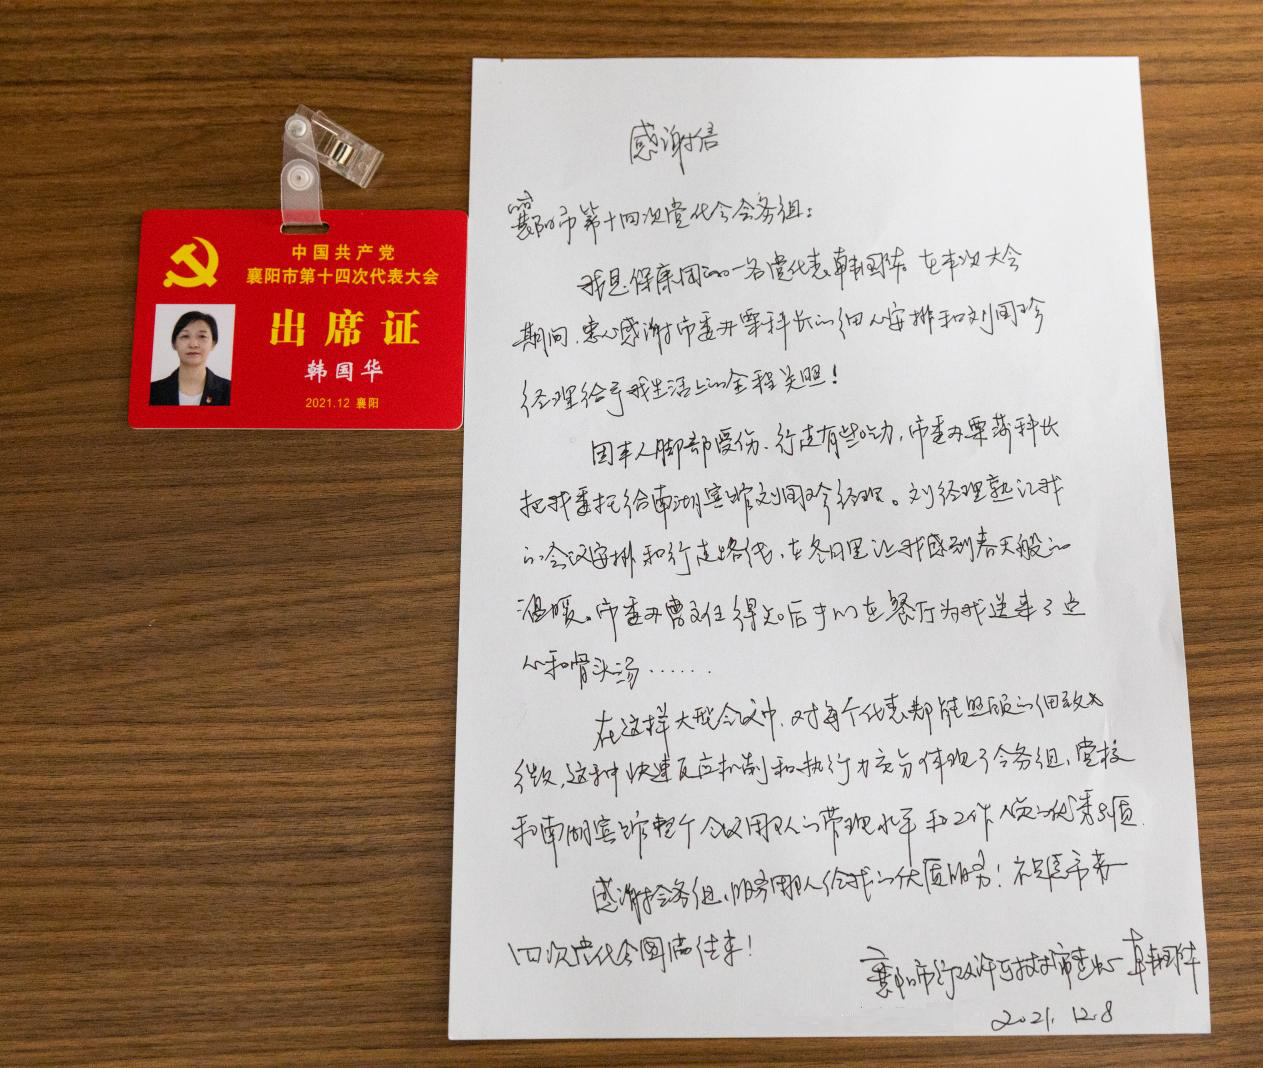 中国共产党
襄阳市第十四次代表大会
出席证
韩国华
2021.12 襄阳
感谢信
襄阳市第十四次党代会会务组：
我是保康团的一名党代表韩国华。在本次大会
期间，衷心感谢市委办栗科长的细心安排和刘国珍
经理给予我生活上的全程关照！
因本人脚部受伤、行走有些吃力，市委办栗科长
把我委托给南湖宾馆刘国珍经理。刘经理熟记我
的会议安排和行走路线，在冬日里让我感到春天般的
温暖。市委办曹主任得知后专门在餐厅为我送来了点
心和骨头汤……
在这样大型会议中，对每个代表都能照顾的细致入
微，这种快速反应机制和执行力充分体现了会务组、党校
和南湖宾馆整个会议团队的管理水平和工作人员的优秀品质。
感谢会务组、服务团队给我的优质服务！祝襄阳市第
十四次党代会圆满结束！
襄阳市行政许可技术审查中心 韩国华
2021.12.8